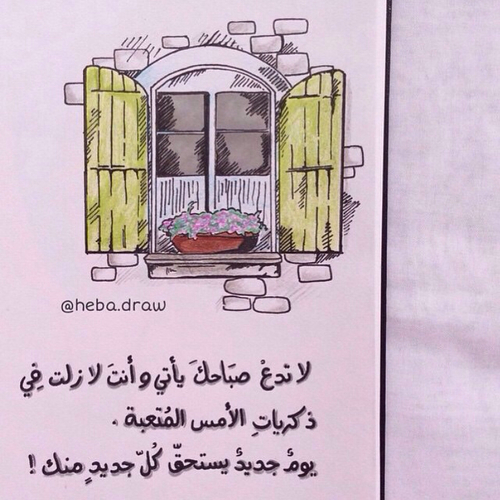 @heba.draw
لا تدعْ صبَاحكَ يأتي و أنتَ لا زلت فِي
ذكرياتِ الأمس المُتعبة .
يومٌ جديدٌ يستحقّ كُلّ جديدٍ منك !